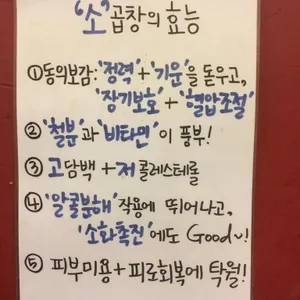 '소' 곱창의 효능
①동의보감:'정력'+'기운'을 돋우고,
'장기보호'+'혈압조절'
②'철분'과'비타민'이 풍부!
③고담백+저콜레스테롤
④'알콜분해'작용에 뛰어나고,
'소화촉진'에도 Good~!
⑤피부미용+피로회복에 탁월!